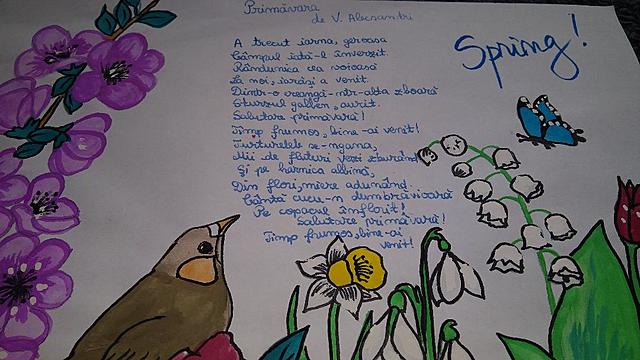 Primăvara
de V. Alecsandri
Spring!
A trecut iarna, geroasa
Câmpul iată-l înverzit.
Rândunica cea voioasă
La noi, iarăși a venit.
Dintr-o creangă-ntr-alta zboară
Sturzul galben, aurit.
Salutare primăvară!
Timp frumos, bine-ai venit!
Turturelele se-ngână,
Mii de fluturi vezi zburând
Și pe harnica albină,
Din flori, miere adunând.
Cântă cucu-n dumbrăvioară
Pe copacul înflorit!
Salutare primăvară!
Timp frumos, bine-ai
venit!